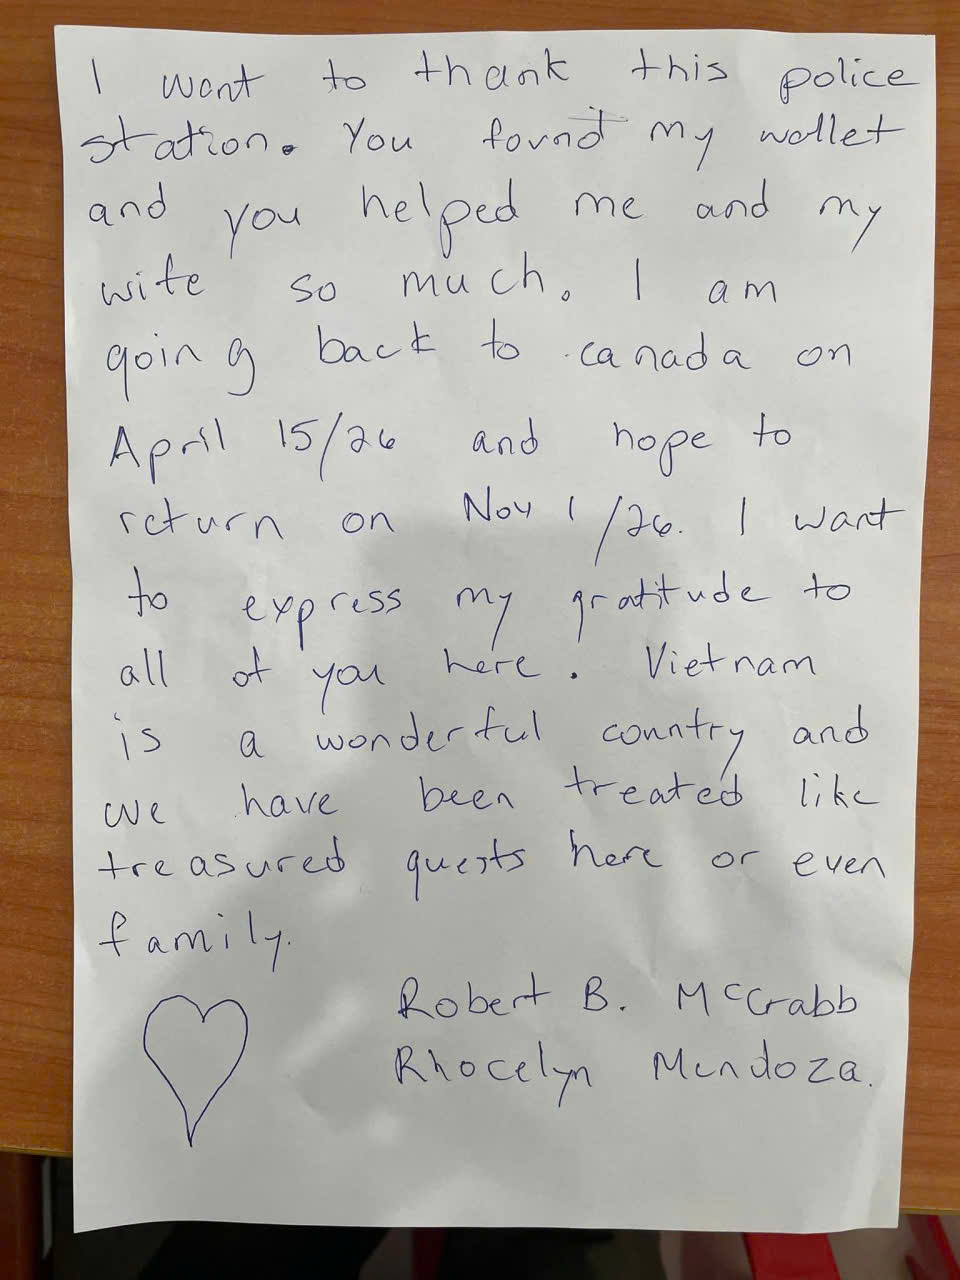 I want to thank this police
station. You found my wallet
and you helped me and my
wife so much. I am
going back to canada on
April 15/26 and hope to
return on Nov 1/26. I want
to express my gratitude to
all of you here. Vietnam
is a wonderful country and
we have been treated like
treasured guests here or even
family.
Robert B. McCrabb
Rhocelyn Mendoza.